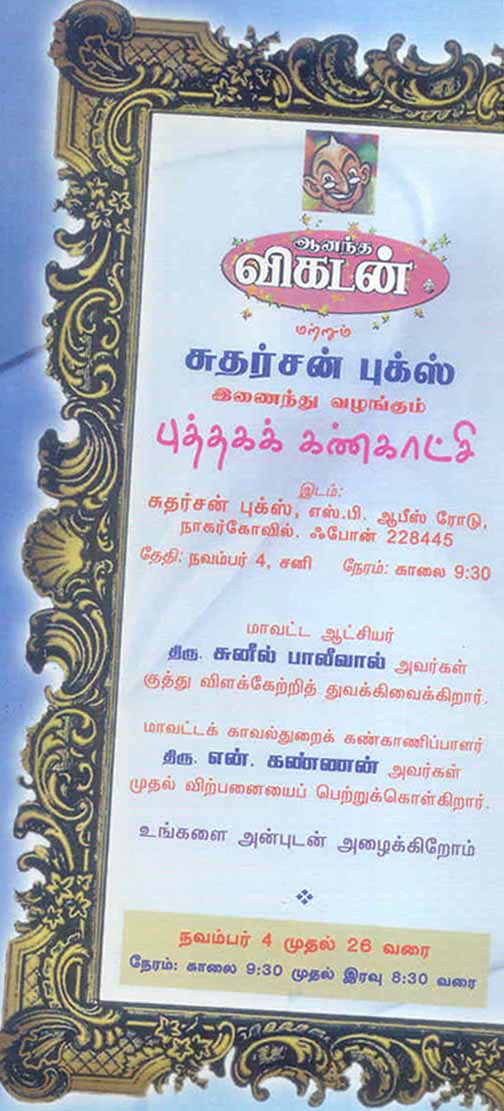 ஆனந்த
விகடன்
மற்றும்
சுதர்சன் புக்ஸ்
இணைந்து வழங்கும்
புத்தகக் கண்காட்சி
இடம்:
சுதர்சன் புக்ஸ், எஸ்.பி. ஆபீஸ் ரோடு,
நாகர்கோவில். ஃபோன் 228445
தேதி: நவம்பர் 4, சனி நேரம்: காலை 9:30
மாவட்ட ஆட்சியர்
திரு. சுனீல் பாலீவால் அவர்கள்
குத்து விளக்கேற்றித் துவக்கிவைக்கிறார்.
மாவட்டக் காவல்துறைக் கண்காணிப்பாளர்
திரு. என். கண்ணன் அவர்கள்
முதல் விற்பனையைப் பெற்றுக்கொள்கிறார்.
உங்களை அன்புடன் அழைக்கிறோம்
நவம்பர் 4 முதல் 26 வரை
நேரம்: காலை 9:30 முதல் இரவு 8:30 வரை